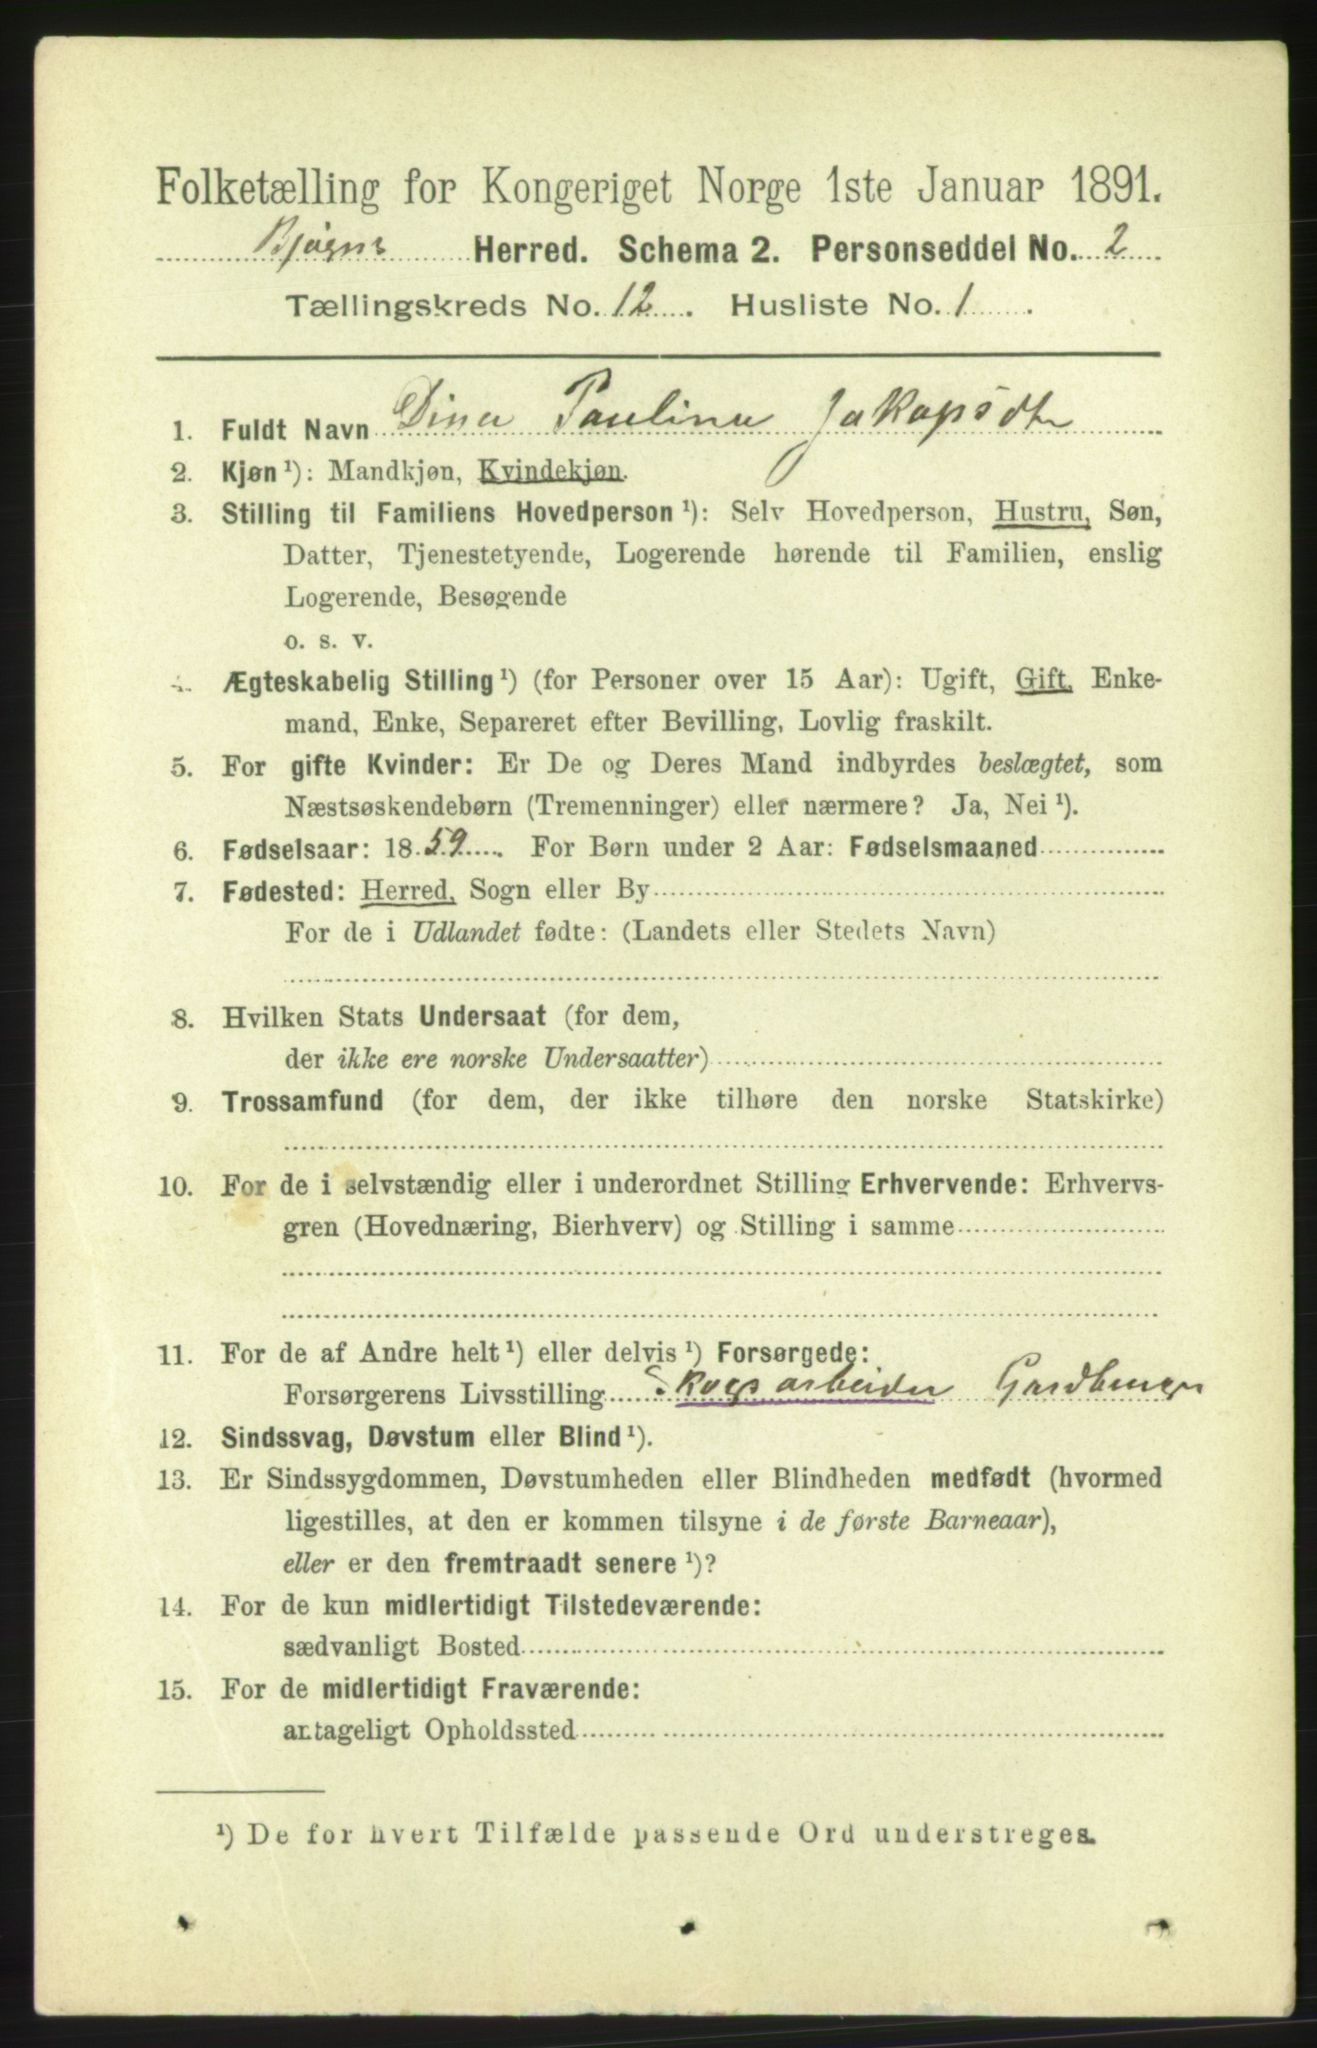 Folketælling for Kongeriget Norge 1ste Januar 1891.
Bjørnø Herred. Schema 2. Personseddel No. 2
Tællingskreds No. 12. Husliste No. 1.
1. Fuldt Navn Dina Paulina Jakopsdt
2. Kjøn ¹): Mandkjøn, Kvindekjøn.
3. Stilling til Familiens Hovedperson ¹): Selv Hovedperson, Hustru, Søn,
Datter, Tjenestetyende, Logerende hørende til Familien, enslig
Logerende, Besøgende
o. s. v.
4. Ægteskabelig Stilling ¹) (for Personer over 15 Aar): Ugift, Gift, Enke-
mand, Enke, Separeret efter Bevilling, Lovlig fraskilt.
5. For gifte Kvinder: Er De og Deres Mand indbyrdes beslægtet, som
Næstsøskendebørn (Tremenninger) eller nærmere? Ja, Nei ¹).
6. Fødselsaar: 1859. For Børn under 2 Aar: Fødselsmaaned
7. Fødested: Herred, Sogn eller By
For de i Udlandet fødte: (Landets eller Stedets Navn)
8. Hvilken Stats Undersaat (for dem,
der ikke ere norske Undersaatter)
9. Trossamfund (for dem, der ikke tilhøre den norske Statskirke)
10. For de i selvstændig eller i underordnet Stilling Erhvervende: Erhvervs-
gren (Hovednæring, Bierhverv) og Stilling i samme
11. For de af Andre helt ¹) eller delvis ¹) Forsørgede:
Forsørgerens Livsstilling Skogsarbeider Gardbruger
12. Sindssvag, Døvstum eller Blind ¹).
13. Er Sindssygdommen, Døvstumheden eller Blindheden medfødt (hvormed
ligestilles, at den er kommen tilsyne i de første Barneaar),
eller er den fremtraadt senere ¹)?
14. For de kun midlertidigt Tilstedeværende:
sædvanligt Bosted
15. For de midlertidigt Fraværende:
antageligt Opholdssted
¹) De for hvert Tilfælde passende Ord understreges.